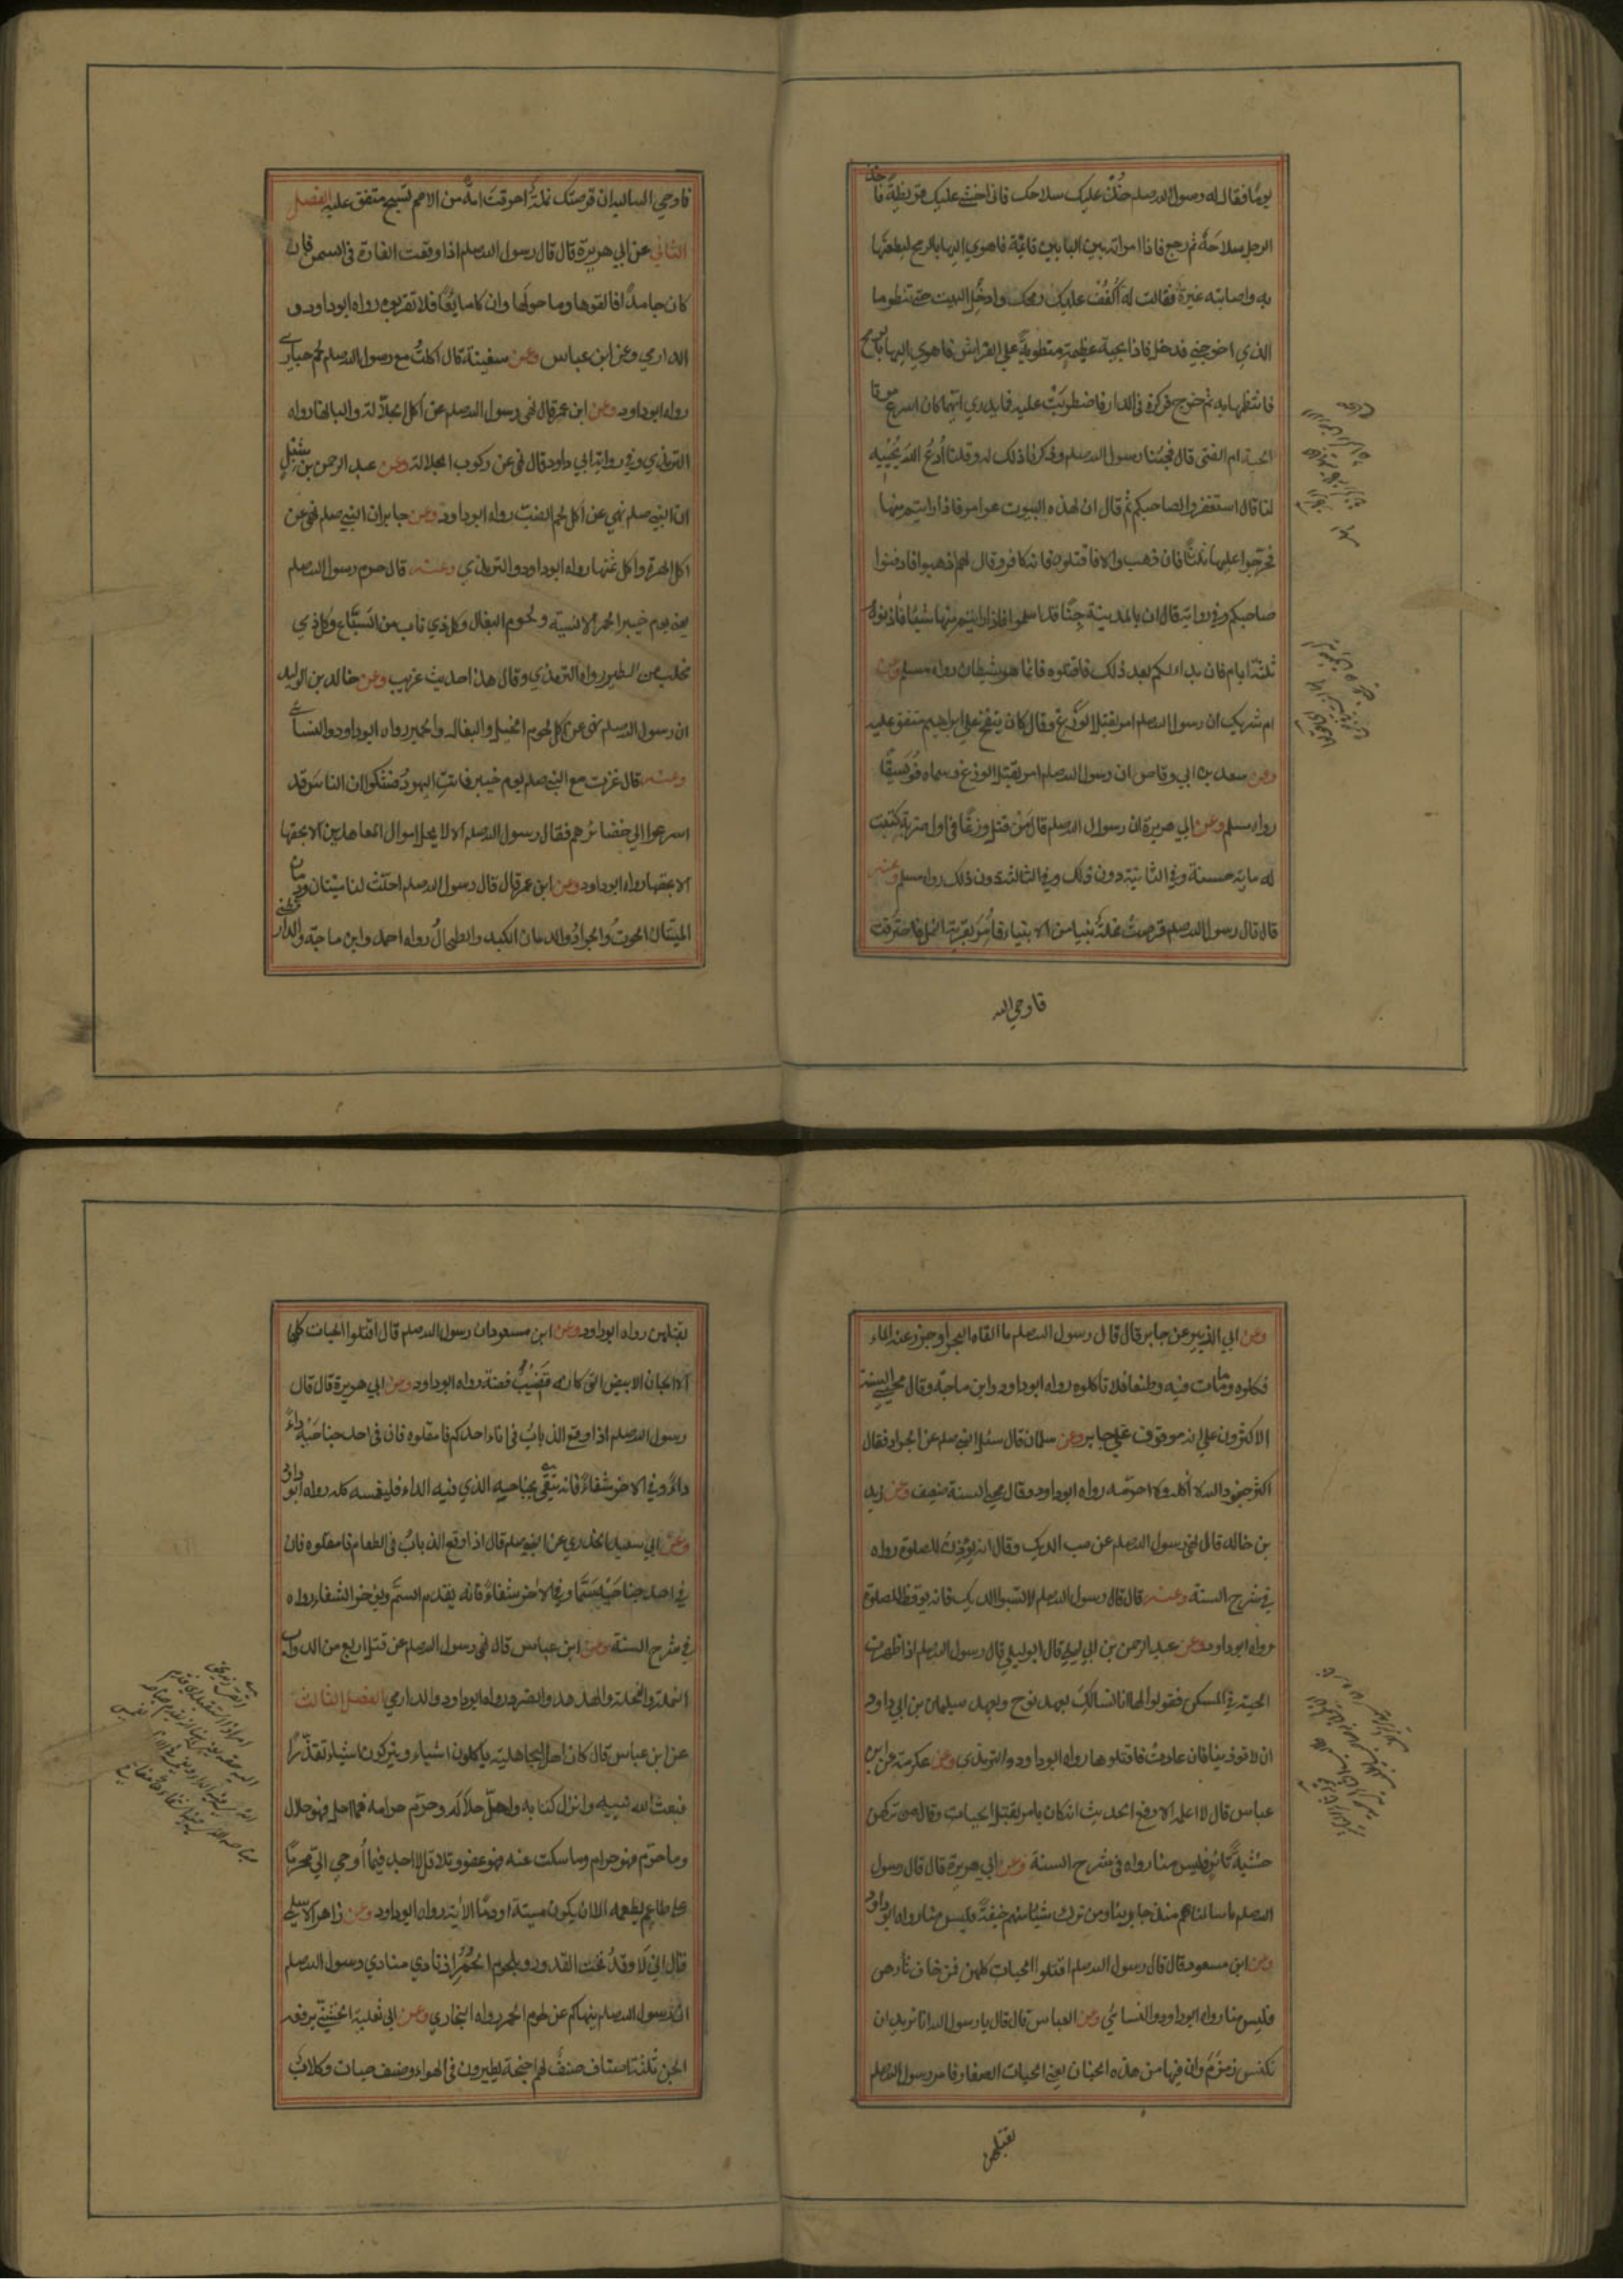 يومًا فقال له رسول الله صلعم خُذْ عليك سلاحك فاني اخشى عليك قريظة فاخذ
الرجل سلاحَهُ ثم رجع فاذا امراته بين البابين قائمة فاهوي اليها بالرمح ليطعنَها
به واصابته غيرة فقالت له اُكْفُفْ عليك رمحك وادخُلِ البيت حتى تنظر ما
الذي اخرجني فدخل فاذا بحية عظيمة منطوية علي الفراش فاهوي اليها بالرمح
فانتظمها به ثم خرج فركزه في الدار فاضطربَتْ عليه فما يدري ايهما كان اسرع موتا
الحية ام الفتى قال فجئنا رسول الله صلعم وذكرنا ذلك له وقلنا اُدْعُ اللهَ يُحْيِيه
لنا قال استغفروا لصاحبكم ثم قال ان لهذه البيوت عوامر فاذا رايتم منها
فحرّجوا عليها ثلاثًا فان ذهب والا فاقتلوه فانه كافر وقال لهم اذهبوا فادفنوا
صاحبكم وفي رواية قال ان بالمدينة جِنًّا قد اسلموا فاذا رايتم منها شيئًا فآذنوه
ثلثة ايام فان بدا لكم بعد ذلك فاقتلوه فانما هو شيطان رواه مسلم وعن
ام شريك ان رسول الله صلعم امر بقتل الوَزَغ وقال كان ينفخ علي ابراهيم متفق عليه
وعن سعد بن ابي وقاص ان رسول الله صلعم امر بقتل الوزغ وسماه فُوَيسِقًا
رواه مسلم وعن ابي هريرة ان رسول الله صلعم قال مَنْ قتل وزغًا في اول ضربة كتبت
له ماية حسنة وفي الثانية دون ذلك وفي الثالثة دون ذلك رواه مسلم وعنه
قال قال رسول الله صلعم قرصتْ نملةٌ نبيا من الانبياء فاَمَرَ بقرية النمل فاحترقت
فاوحي الله
فاوحي الله اليه ان قرصتك نملةٌ احرقتَ امةً من الامم تسبح متفق عليه الفصل
الثاني عن ابي هريرة قال قال رسول الله صلعم اذا وقعت الفارة في السمن فان
كان جامدًا فالقوها وما حولها وان كان مايعًا فلا تقربوه رواه ابوداود و
الدارمي وعن ابن عباس وعن سفينة قال اكلتُ مع رسول الله صلعم لحم حباري
رواه ابوداود وعن ابن عمر قال نهي رسول الله صلعم عن اكل الجلّالة والبانها رواه
الترمذي وفي رواية ابي داود قال نهي عن ركوب الجلالة وعن عبد الرحمن بن شبل
ان النبي صلعم نهي عن اكل لحم الضبّ رواه ابوداود وعن جابر ان النبي صلعم نهي عن
اكل الهرة واكل ثمنها رواه ابوداود والترمذي وعنه قال حرم رسول الله صلعم
يعني يوم خيبر الحمر الانسية ولحوم البغال وكل ذي ناب من السّباع وكل ذي
مخلب من الطير رواه الترمذي وقال هذا حديث غريب وعن خالد بن الوليد
ان رسول الله صلعم نهي عن اكل لحوم الخيل والبغال والحمير رواه ابوداود والنسائي
وعنه قال غزت مع النبي صلعم يوم خيبر فاتتِ اليهودُ فشكوا ان الناس قد
اسرعوا الي خضائرهم فقال رسول الله صلعم الا لا يحل اموال المعاهدين الا بحقها
الا بحقها رواه ابوداود وعن ابن عمر قال قال رسول الله صلعم احلّت لنا ميتتان ودمان
الميتتان الحوتُ والجرادُ والدمان الكبد والطحالُ رواه احمد وابن ماجة والدارقطني
وعن ابي الزبير عن جابر قال قال رسول الله صلعم ما القاه البحر او جزر عنه الماء
فكلوه وما مات فيه وطفا فلا تاكلوه رواه ابوداود وابن ماجة وقال محيي السنة
الاكثرون علي انه موقوف علي جابر وعن سلمان قال سئل النبي صلعم عن الجراد فقال
اكثر جنود الله لا اٰكله ولا احرّمه رواه ابوداود وقال محيي السنة ضعيف وعن زيد
بن خالد قال نهي رسول الله صلعم عن سب الديك وقال انه يؤذنُ للصلوة رواه
في شرح السنة وعنه قال قال رسول الله صلعم لا تسبوا الديك فانه يوقظ للصلوة
رواه ابوداود وعن عبد الرحمن بن ابي ليلي قال قال ابوليلي قال رسول الله صلعم اذا ظهرت
الحية في المسكن فقولوا لها انا نسالكِ بعهد نوح وبعهد سليمان بن ابي داود
ان لا توذينا فان عادتْ فاقتلوها رواه ابوداود والترمذي وعن عكرمة عن ابن
عباس قال لا اعلمه الا رفع الحديث انه كان يامر بقتل الحيات وقال من تركهن
خشيةَ ثائرٍ فليس منا رواه في شرح السنة وعن ابي هريرة قال قال رسول
الله صلعم ما سالمناهم منذ حاربناهم ومن ترك شيئا منهم خيفةً فليس منا رواه ابوداود
وعن ابن مسعود قال قال رسول الله صلعم اقتلوا الحيات كلهن فمن خاف ثارهن
فليس منا رواه ابوداود والنسائي وعن العباس قال قال يا رسول الله انا نريد ان
نكنس زمزم وان فيها من هذه الجنان يعني الحيات الصغار فامر رسول الله صلعم
بقتلهن
بقتلهن رواه ابوداود وعن ابن مسعود ان رسول الله صلعم قال اقتلوا الحيات كلها
الا الجان الابيض الذي كانه قَضَيْبُ فضة رواه ابوداود وعن ابي هريرة قال قال
رسول الله صلعم اذا وقع الذبابُ في اناء احدكم فامقلوه فان في احد جناحَيْهِ داءً
داءً وفي الاخر شفاءً فانه يتّقي بجناحيه الذي فيه الداء فليغمسه كله رواه ابوداود
وعن ابي سعيد الخدري عن النبي صلعم قال اذا وقع الذبابُ في الطعام فامقلوه فان
في احد جناحَيْه سَمًّا وفي الاٰخر شفاءً فانه يقدم السّمَّ ويؤخر الشفاء رواه
في شرح السنة وعن ابن عباس قال نهي رسول الله صلعم عن قتل اربع من الدواب
النملة والنحلة والهدهد والصرد رواه ابوداود والدارمي الفصل الثالث
عن ابن عباس قال كان اهل الجاهلية ياكلون اشياء ويتركون اشياء تقذّرًا
فبعث الله نبيه وانزل كتابه واحلّ حلاله وحرّم حرامه فما احل فهو حلال
وما حرّم فهو حرام وما سكت عنه فهو عفو وتلا قل لا اجد فيما اُوحي اليّ محرمًا
علي طاعمٍ يطعمه الا ان يكون ميتة او دمًا الاٰية رواه ابوداود وعن زاهر الاسلمي
قال اني لَاُوقدُ تحت القدور بلحوم الحُمُرِ اذ نادي منادي رسول الله صلعم
ان رسول الله صلعم ينهاكم عن لحوم الحمر رواه البخاري وعن ابي ثعلبة الخُشَنِيّ يرفعه
الجن ثلثة اصناف صنفٌ لهم اجنحة يطيرون في الهواء وصنف حيات وكلابٌ